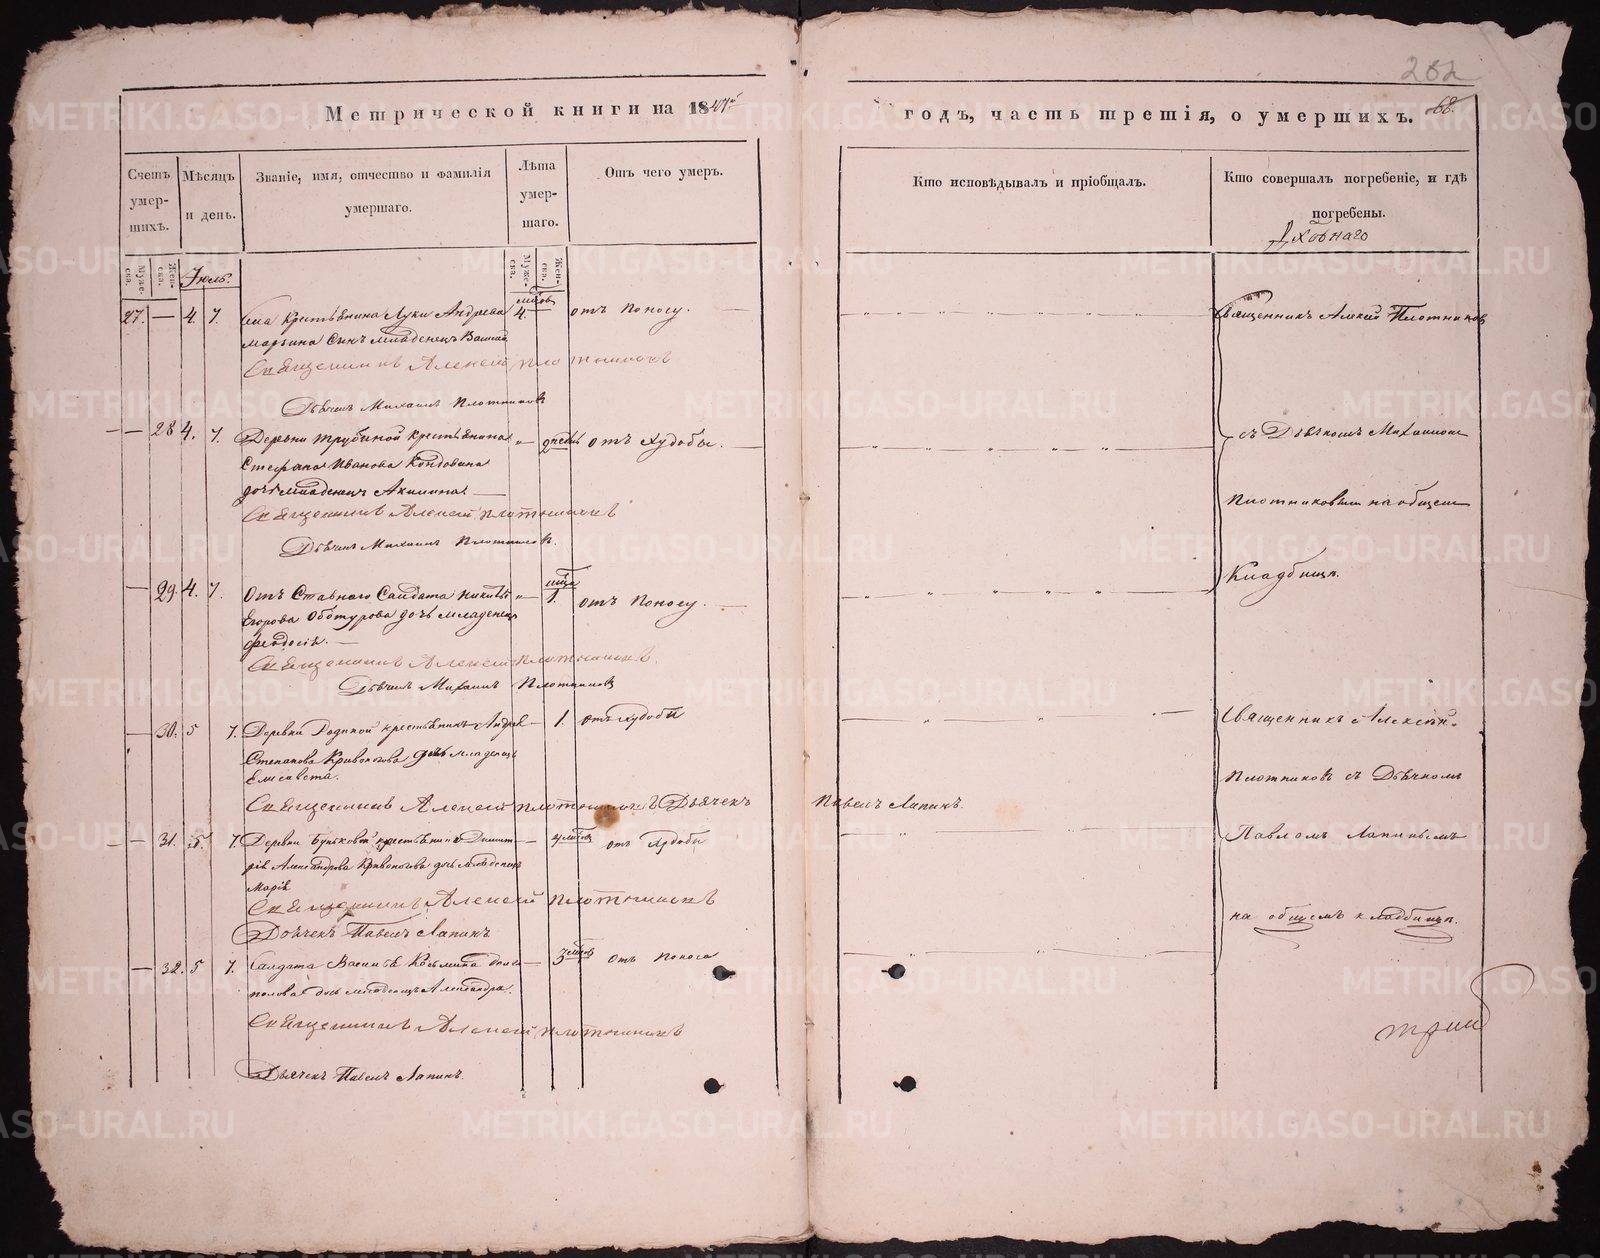 282
Метрической книги на 1847й
годъ, часть третія, о умершихъ.
68.
Счетъ умер-шихъ.
Мѣсяцъ и день.
Званіе, имя, отчество и фамилія умершаго.
Лѣта умер-шаго.
Отъ чего умеръ.
Кто исповѣдывалъ и пріобщалъ.
Кто совершалъ погребеніе, и гдѣ погребены.
Муже-ска.
Жен-ска.
Іюль.
Муже-ска.
Жен-ска.
27. — 4. 7. Села крестьянина Луки Андреева 4. отъ поносу.
Марьина сынъ младенецъ
Священникъ Алексей Плотниковъ
Священникъ Алексей Плотниковъ
Дьячекъ Михаилъ Плотниковъ
— 28 4. 7. Деревни Трубиной крестьянина — отъ худобы.
съ Дьячкомъ Михаиломъ
Стефана Иванова
дочь младенецъ Акилина.
Плотниковымъ на общем
Священникъ Алексей Плотниковъ
Дьячекъ Михаилъ Плотников.
— 29. 4. 7. Отъ Ставнаго Салдата — 1. отъ поносу.
Кладбище.
Егорова дочь младенецъ
Феодосія.
Священникъ Алексей Плотниковъ.
Дьячекъ Михаилъ Плотниковъ
— 30. 5 7. Деревни крестьянина Андрея — 1. отъ худобы
Священникъ Алексей
Степанова Кривоногова дочь младенецъ
Елисавета.
Плотниковъ съ Дьячкомъ
Священникъ Алексей Плотниковъ Дьячекъ Павелъ Лапинъ.
— 31. 5. 7. Деревни крестьянина Димит — отъ худобы
Павломъ Лапинымъ
рія Александрова Кривоногова дочь младенецъ
Марія
Священникъ Алексей Плотниковъ
на общемъ кладбищѣ.
Дьячекъ Павелъ Лапинъ.
— 32. 5 7. Салдата Василья Козьмина — 3 отъ поноса
дочь младенецъ Александра.
Священникъ Алексей Плотниковъ
Дьячекъ Павелъ Лапинъ.
METRIKI.GASO-URAL.RU